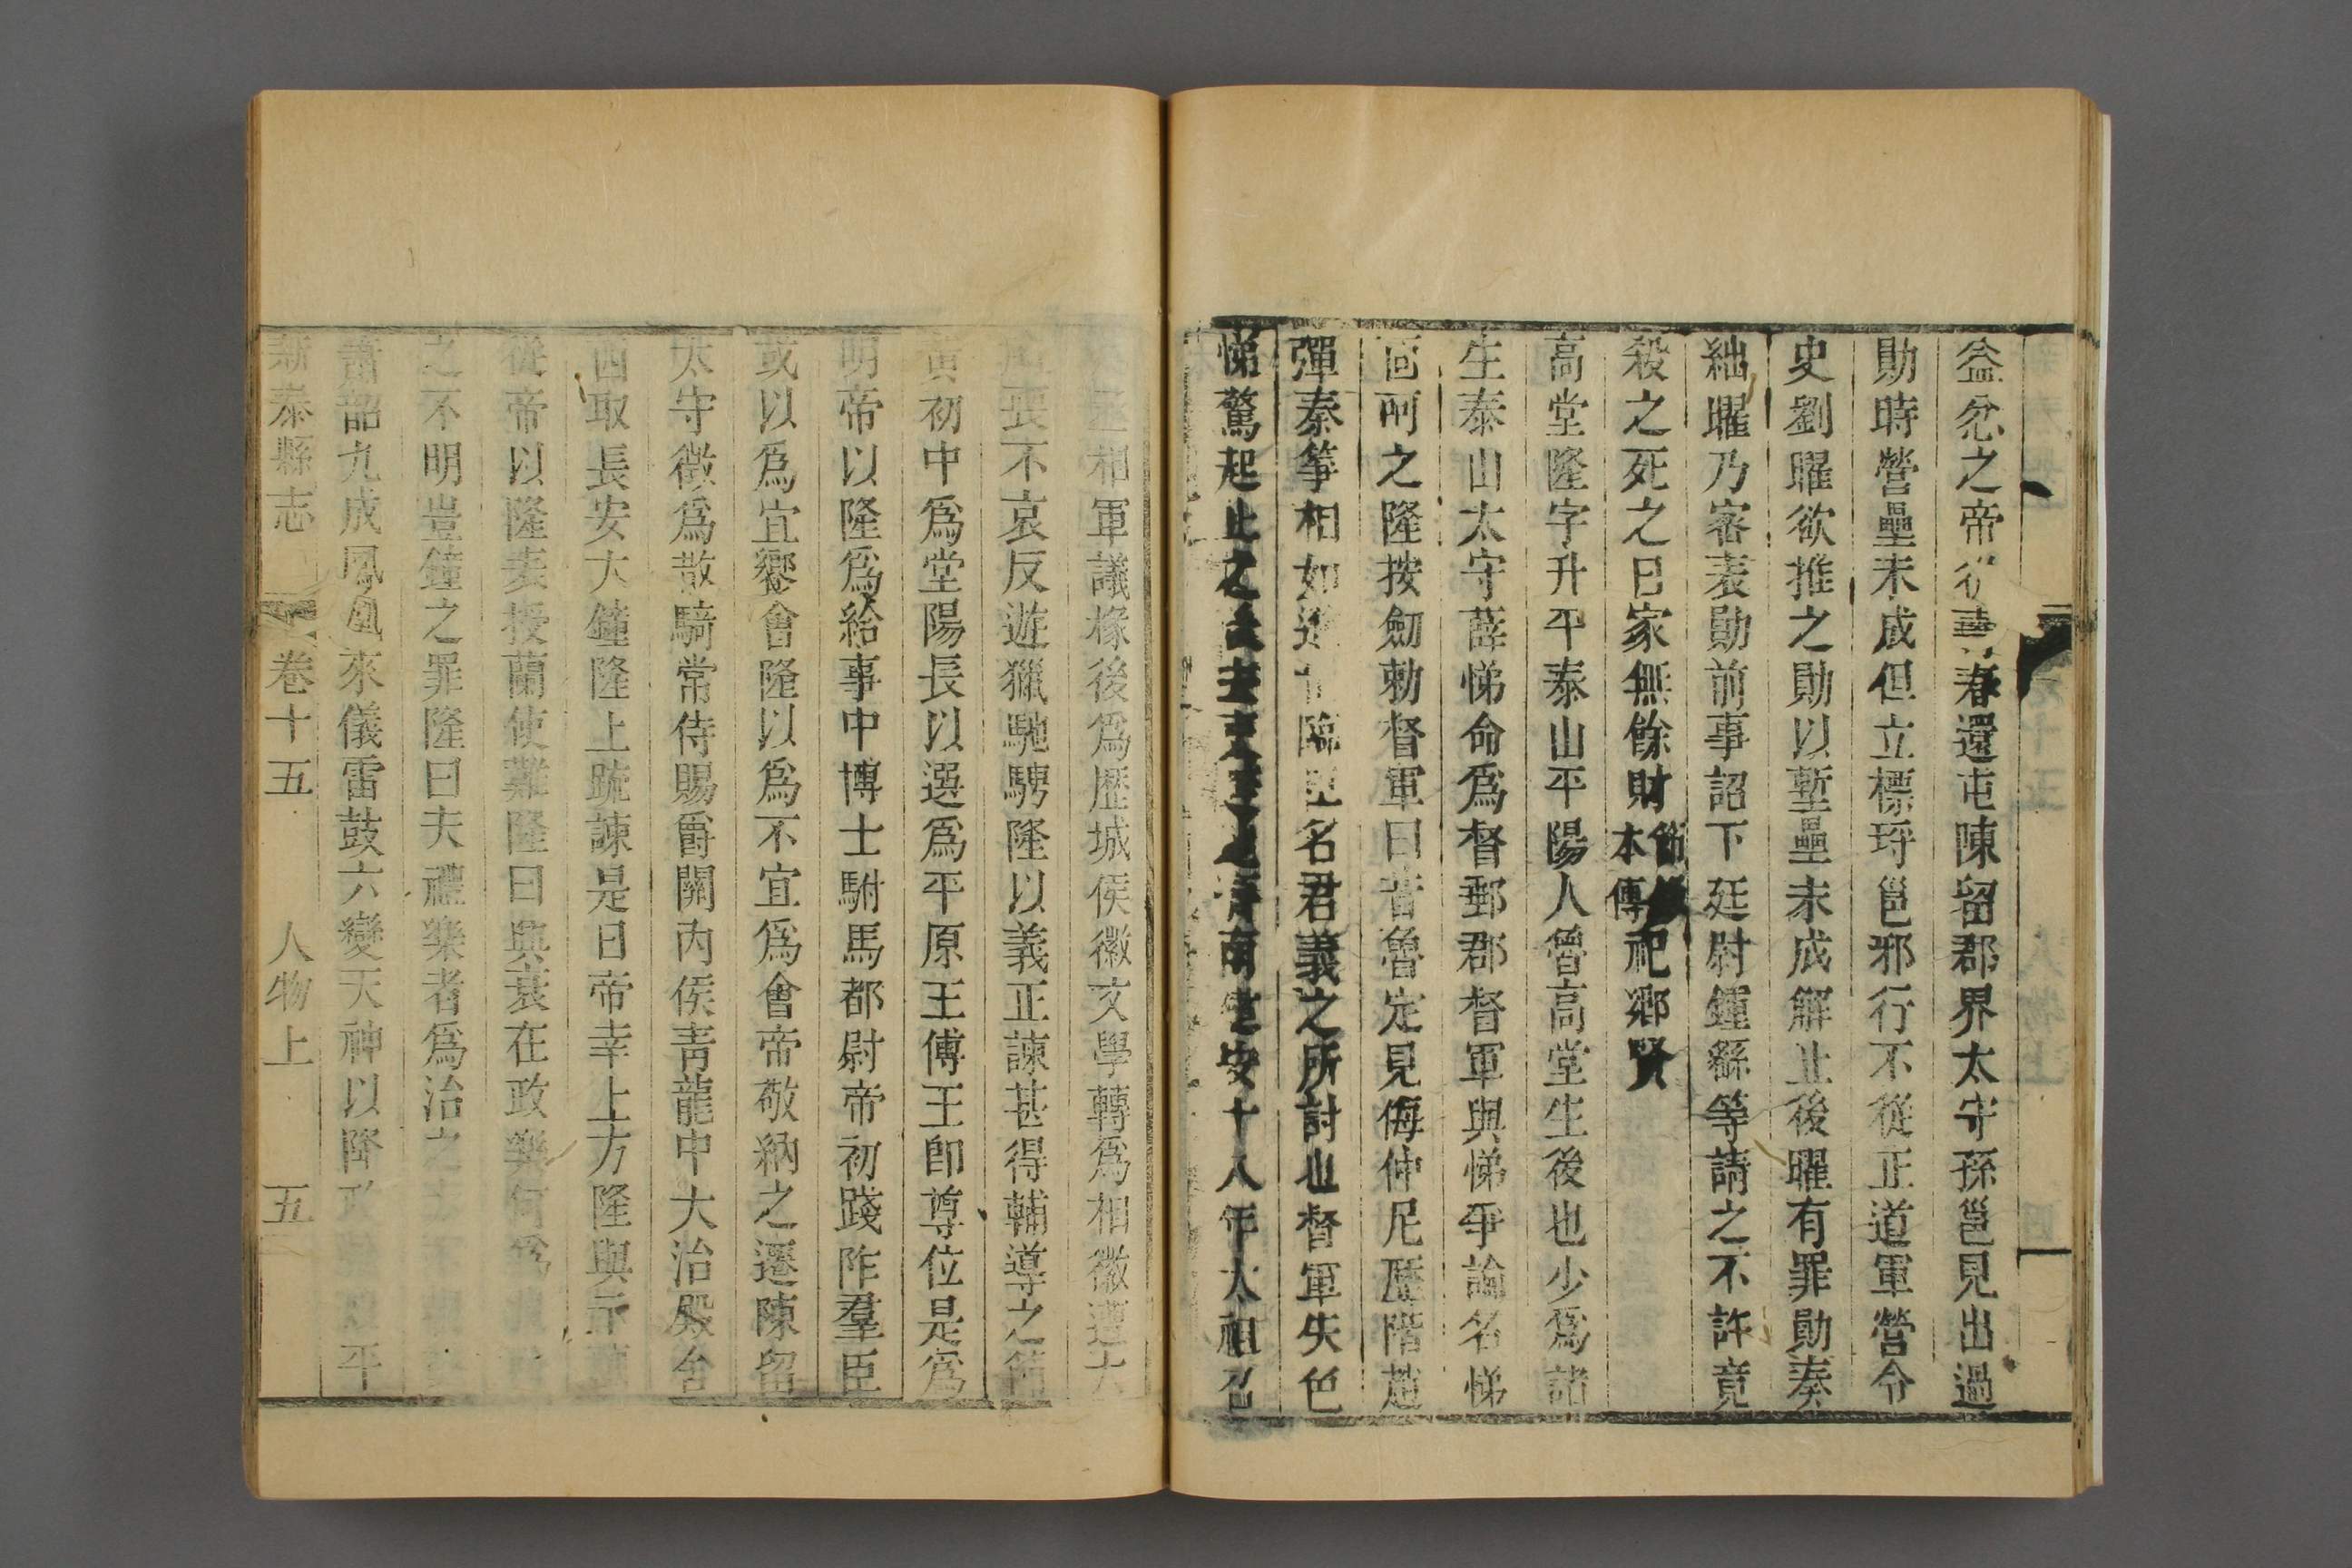 益忿之帝從壽春還屯陳留郡界太守孫邕見出過
勛時營壘未成但立標埒邕邪行不從正道軍營令
史劉曜欲推之勛以塹壘未成解止後曜有罪勛奏
絀曜乃密表勛前事詔下廷尉鍾繇等請之不許竟
殺之死之日家無餘財節錄本傳祀鄉賢
高堂隆字升平泰山平陽人魯高堂生後也少爲諸
生泰山太守薛悌命爲督郵郡督軍與悌爭論名悌
而呵之隆按劒勅督軍曰昔魯定見侮仲尼歷階趙
彈秦箏相如進缶臨臣名君義之所討也督軍失色
悌驚起止之後去吏濟南建安十八年太祖召
丞相軍議掾後爲歷城侯徽文學轉爲相徽遭太
喪不哀反遊獵馳騁隆以義正諫甚得輔導之節
黃初中爲堂陽長以選爲平原王傅王卽尊位是爲
明帝以隆爲給事中博士駙馬都尉帝初踐阼羣臣
或以爲宜饗會隆以爲不宜爲會帝敬納之遷陳留
太守徵爲散騎常侍賜爵關內侯青龍中大治殿舍
西取長安大鐘隆上疏諫是日帝幸上方隆與卞蘭
從帝以隆表授蘭使難隆曰興衰在政樂何爲
之不明豈鐘之罪隆曰夫禮樂者爲治之
簫韶九成鳳凰來儀雷鼓六變天神以降政平
新泰縣志 卷十五 人物上 五